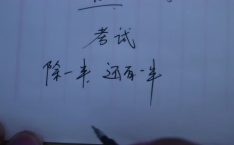 考试
除一半,还有一半